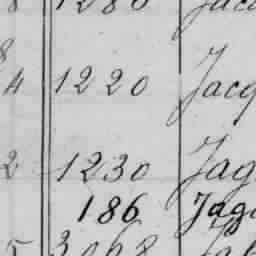 8 1280 Jac
4 1220 Jacq
2 1230 Jag
186 Jag
5 3068